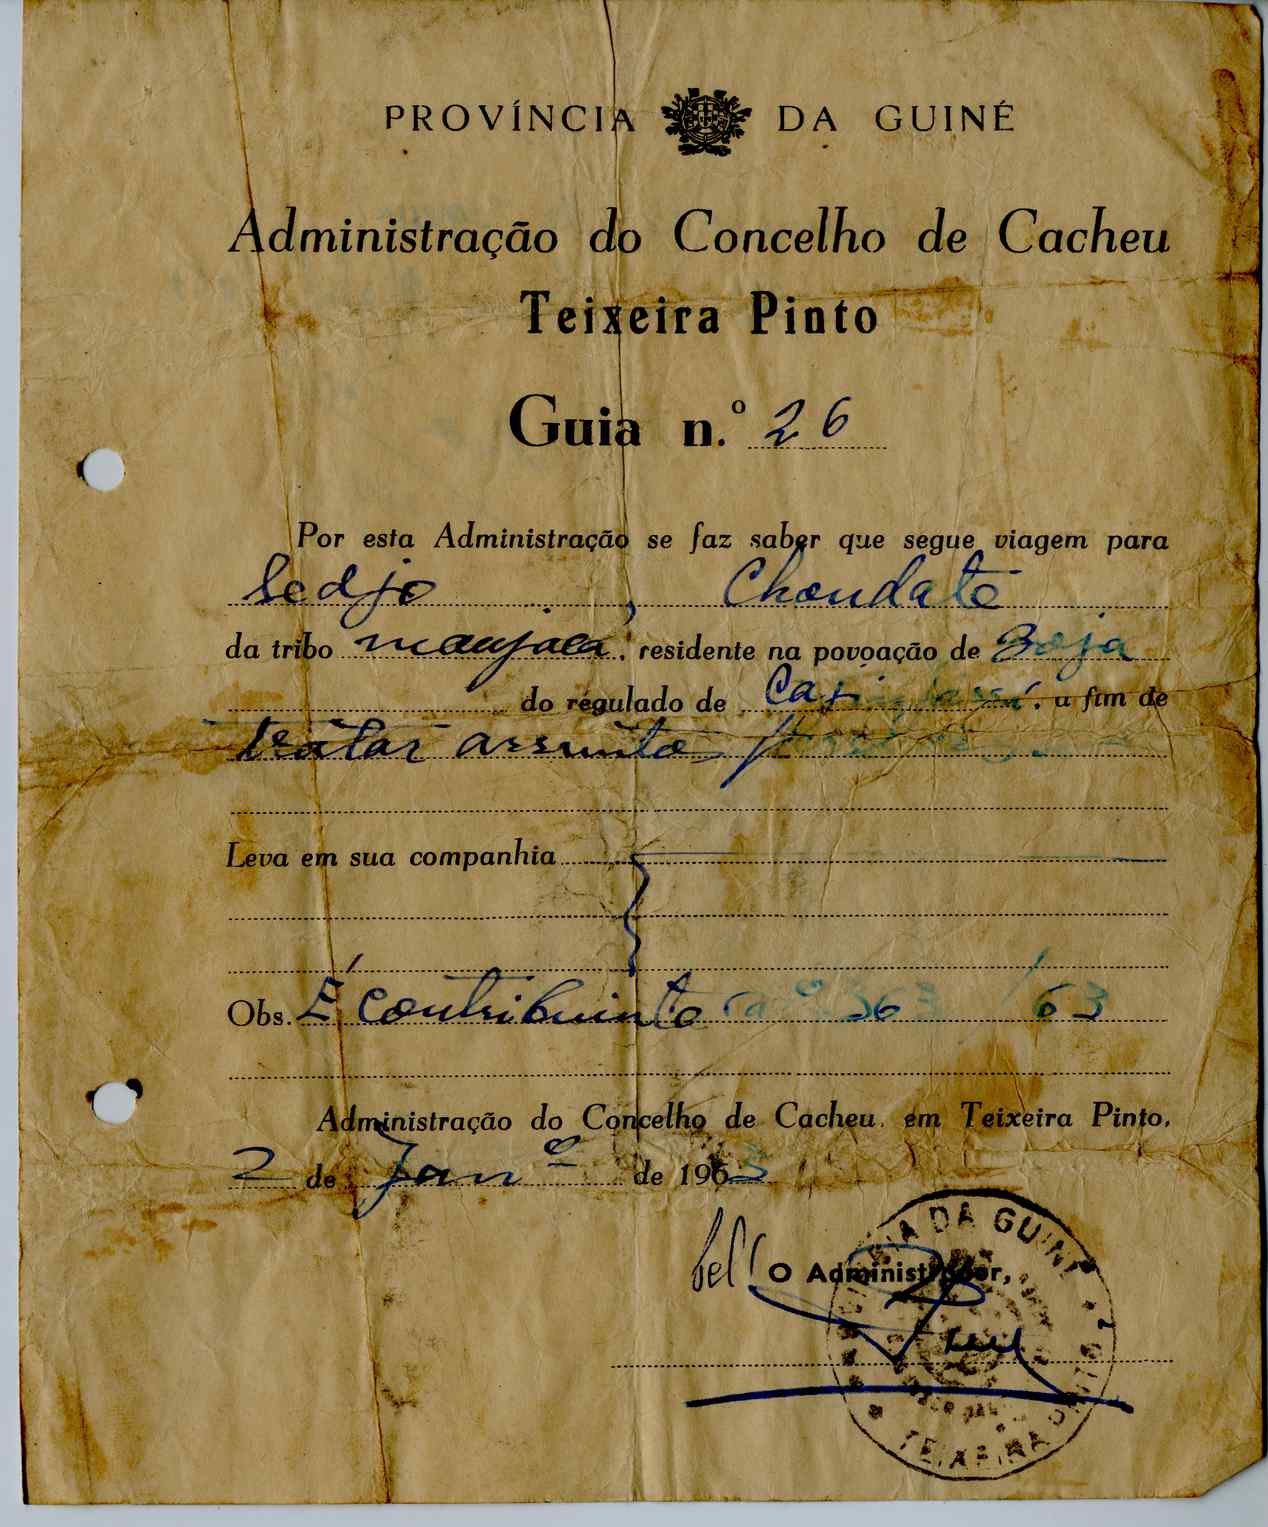 PROVÍNCIA DA GUINÉ
Administração do Concelho de Cacheu
Teixeira Pinto
Guia n.º 26
Por esta Administração se faz saber que segue viagem para
Sedjo, Chondate
da tribo manjaca, residente na povoação de
do régulado de a fim de
tratar assunto
Leva em sua companhia
Obs. É contribuinte 363 /63
Administração do Concelho de Cacheu, em Teixeira Pinto,
2 de Janº de 1963
O Administrador,
DA GUINÉ
TEIXEIRA PINTO